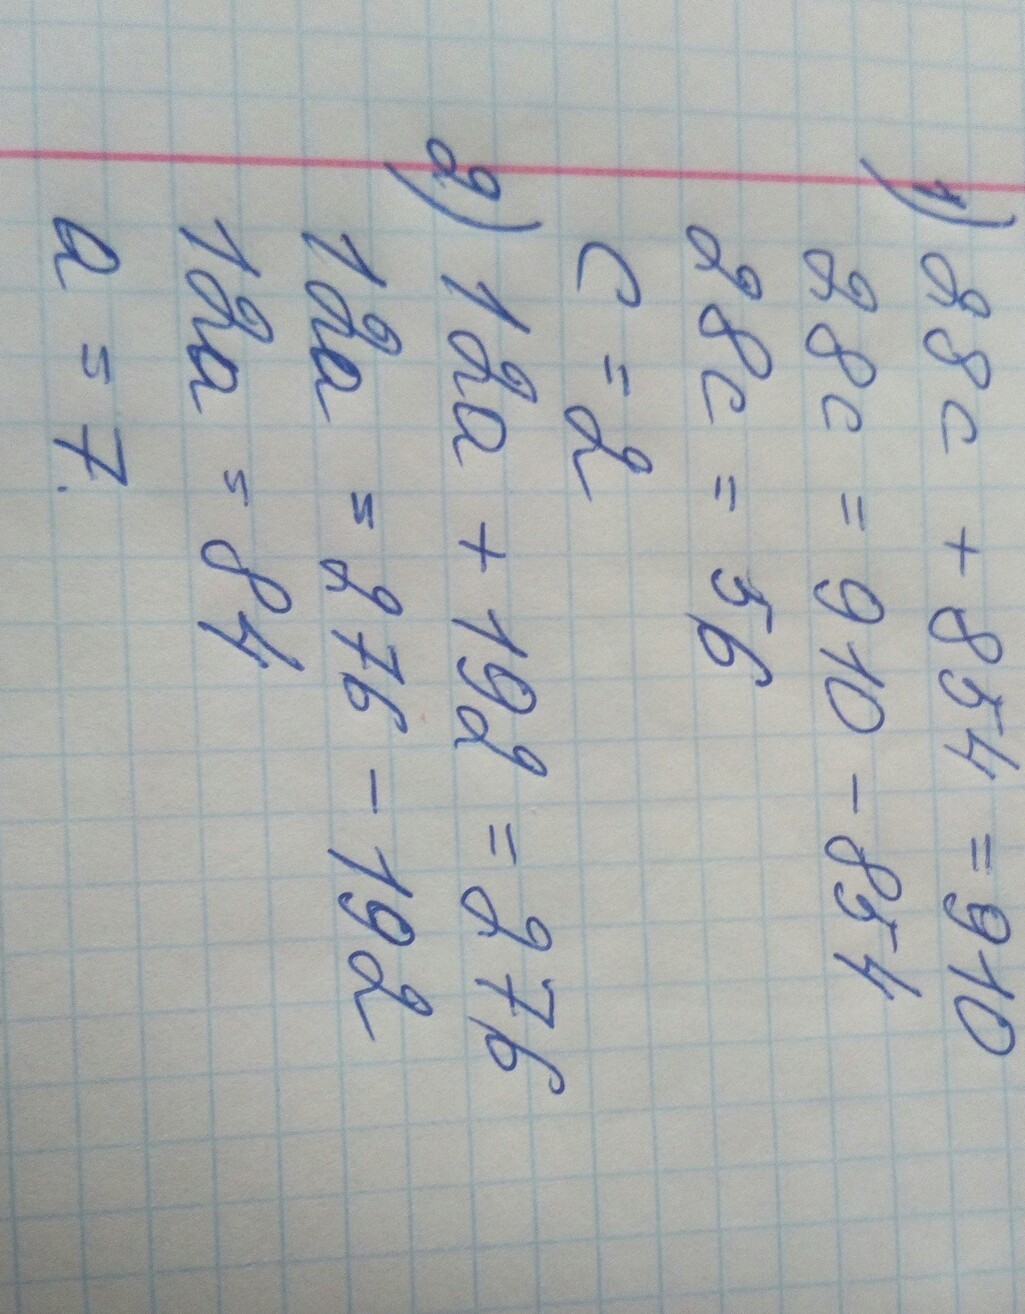 1) 28c + 854 = 910
28c = 910 - 854
28c = 56
c = 2
2) 12a + 192 = 276
12a = 276 - 192
12a = 84
a = 7.